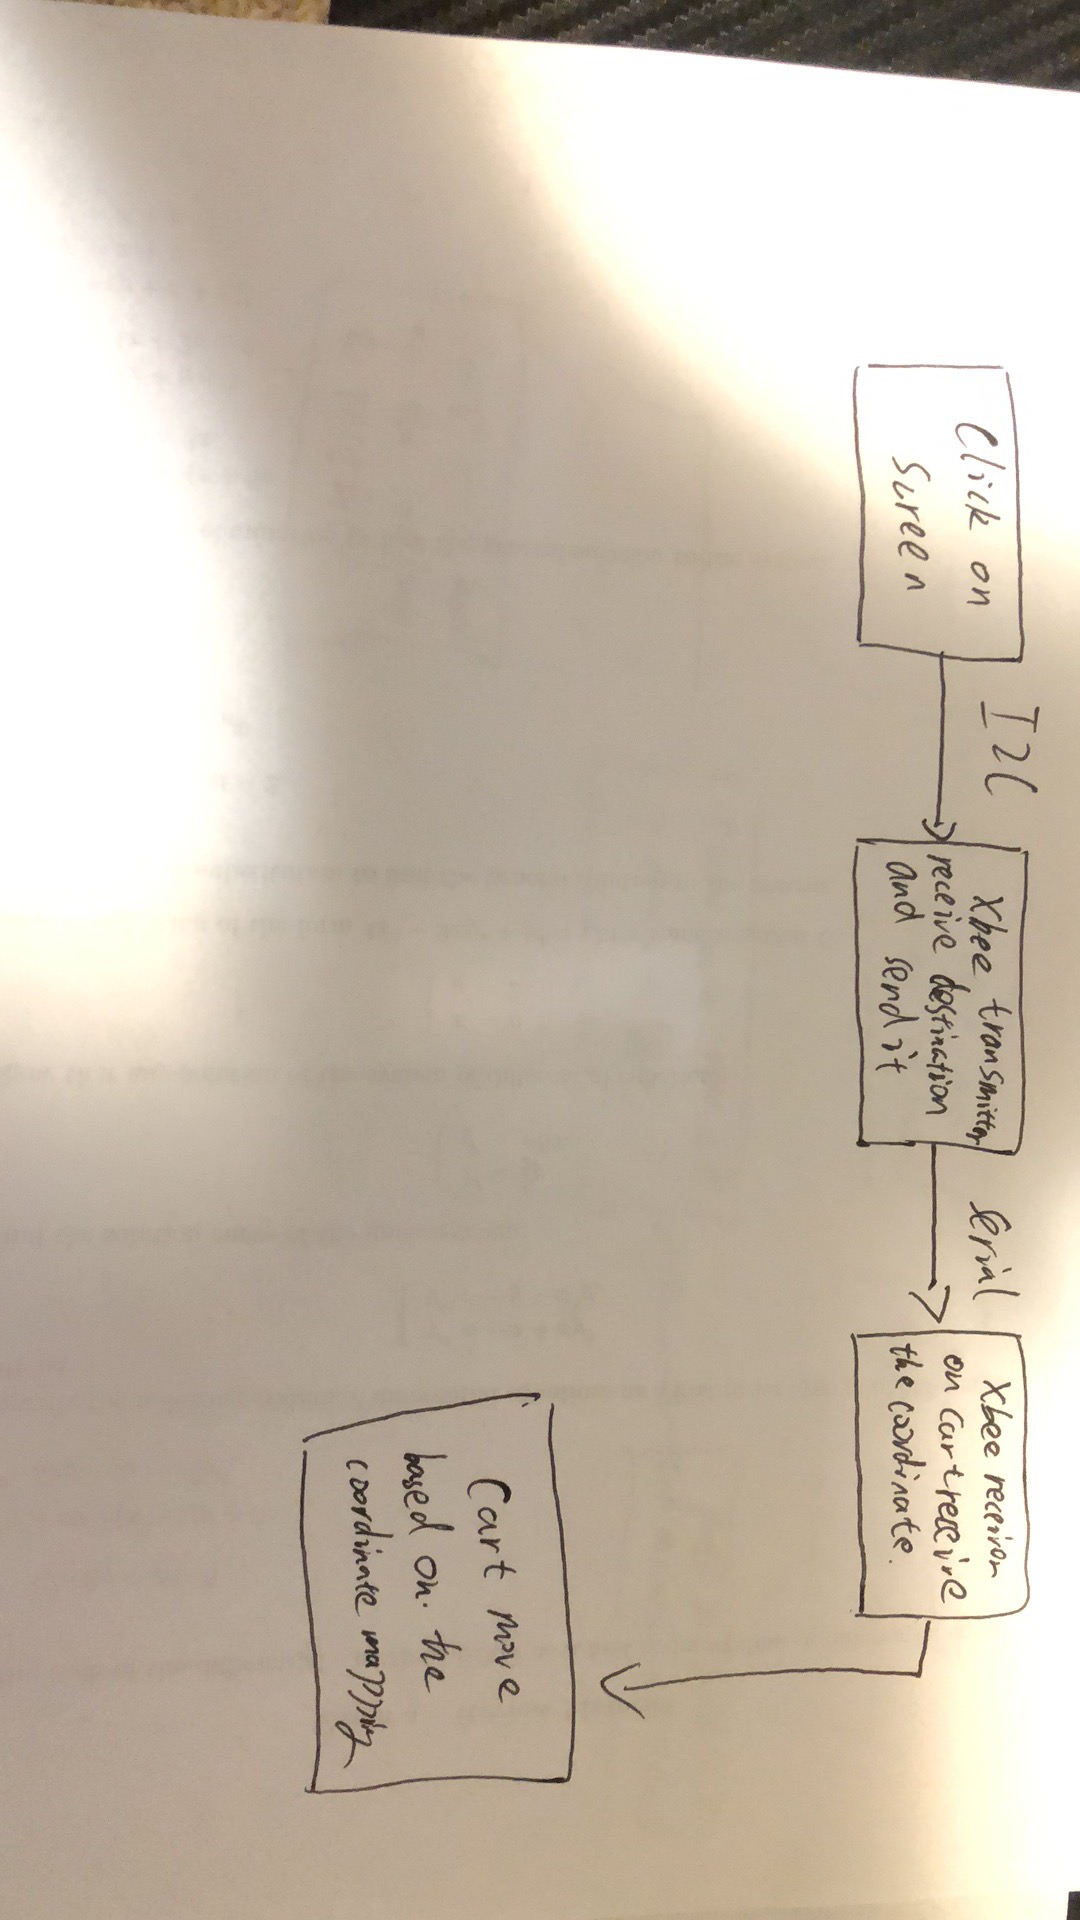 Click on
Screen
I2C
Xbee transmitter
receive destination
and send it
Serial
Xbee receiver
on cart receive
the coordinate.
Cart move
based on. the
coordinate mapping